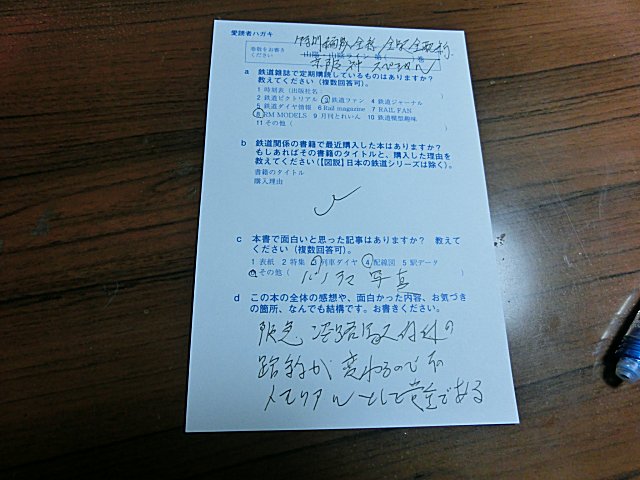 愛読者ハガキ
巻数をお書き
ください
a 鉄道雑誌で定期購読しているものはありますか?
教えてください(複数回答可)。
1 時刻表(出版社名
2 鉄道ピクトリアル 3 鉄道ファン 4 鉄道ジャーナル
5 鉄道ダイヤ情報 6 Rail magazine 7 RAIL FAN
8 RM MODELS 9 月刊とれいん 10 鉄道模型趣味
11 その他(
b 鉄道関係の書籍で最近購入した本はありますか?
もしあればその書籍のタイトルと、購入した理由を
教えてください(【図説】日本の鉄道シリーズは除く)。
書籍のタイトル
購入理由
c 本書で面白いと思った記事はありますか? 教えて
ください(複数回答可)。
1 表紙 2 特集 3 列車ダイヤ 4 配線図 5 駅データ
6 その他( 写真
d この本の全体の感想や、面白かった内容、お気づき
の箇所、なんでも結構です。お書きください。
阪急 淡路
が 変わるので
メモリアルとして である